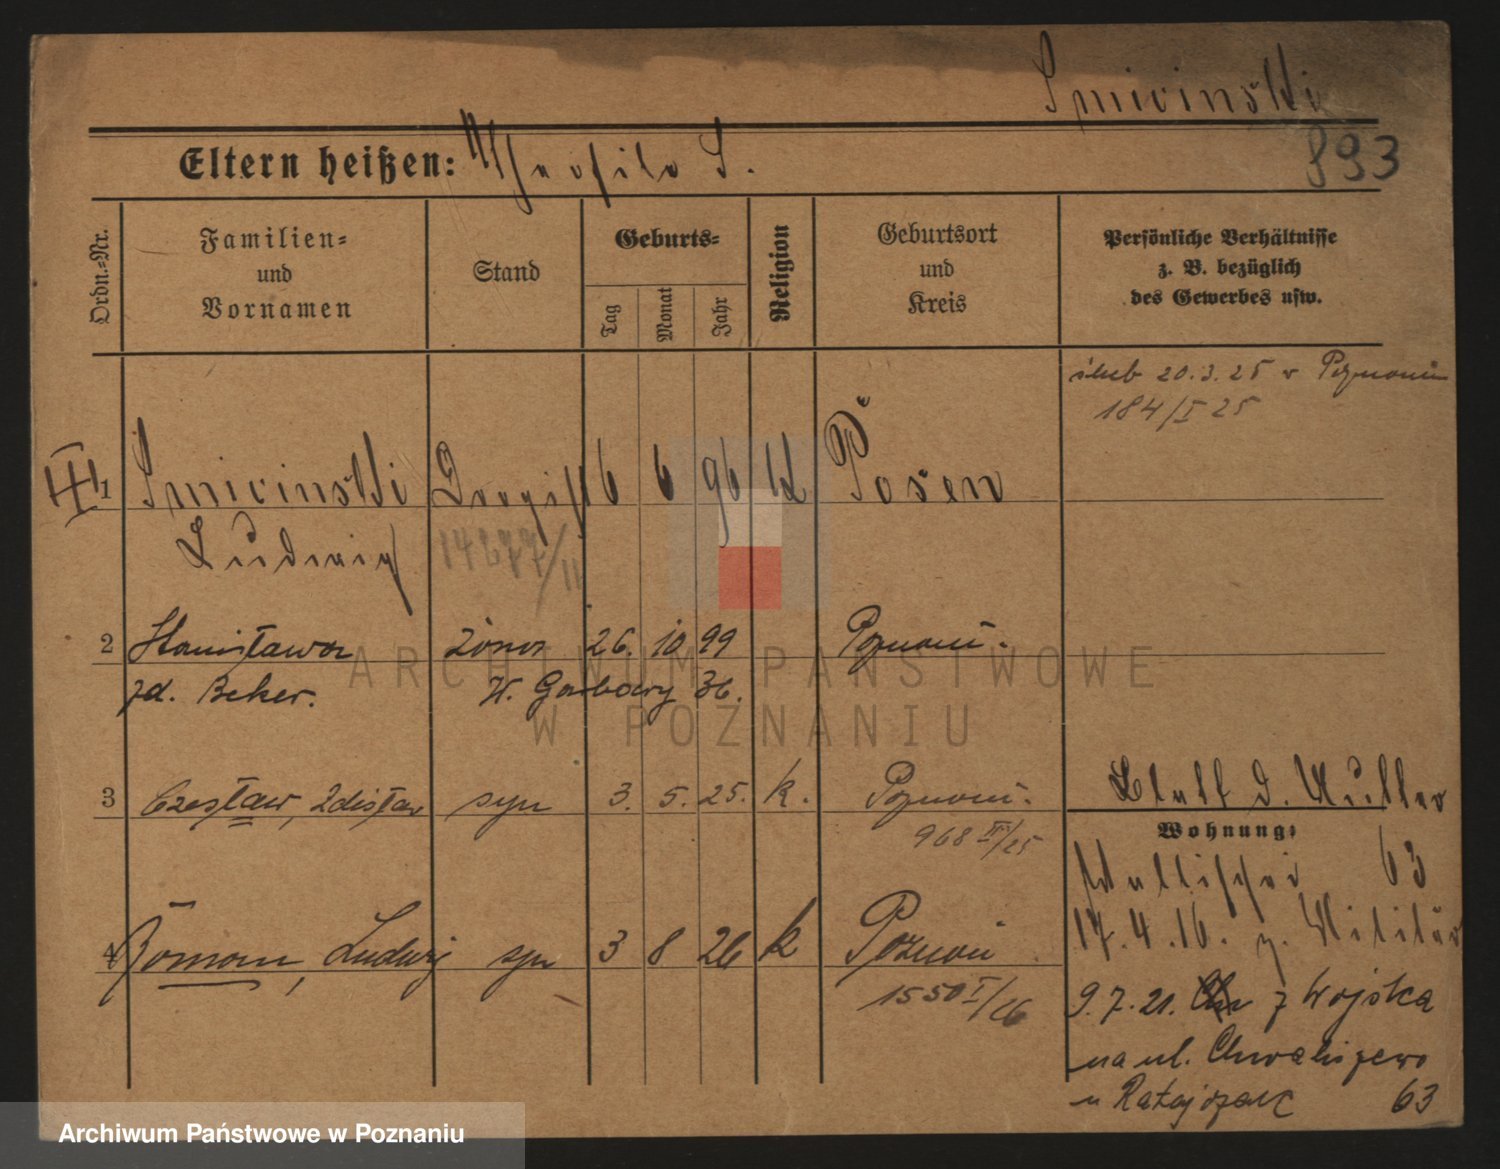 Smicinski
893
Eltern heißen: Theofila S.
Ordn.=Nr.
Familien=
und
Vornamen
Stand
Geburts=
Tag
Monat
Jahr
Religion
Geburtsort
und
Kreis
Persönliche Verhältnisse
z. B. bezüglich
des Gewerbes usw.
ślub 20.3.25 w Poznaniu
184/I 25
III
1 Smicinski Drogist 6 6 96 k Posen
Ludwig 14677/II
2 Stanisława żona 26. 10 99 Poznań.
zd. Beker. W. Garbary 36.
3 Czesław, Zdisław syn 3. 5. 25. k. Poznań.
968 III/25
4 Roman, Ludwig syn 3 8 26 k Poznań
1550 I/26
b. Müller
Wohnung:
Wallischei 63
17.4.16. z. Militär
9.7.21. z Wojska
na ul. Chwaliszewo
u Ratajczak 63
ARCHIWUM PAŃSTWOWE
W POZNANIU
Archiwum Państwowe w Poznaniu